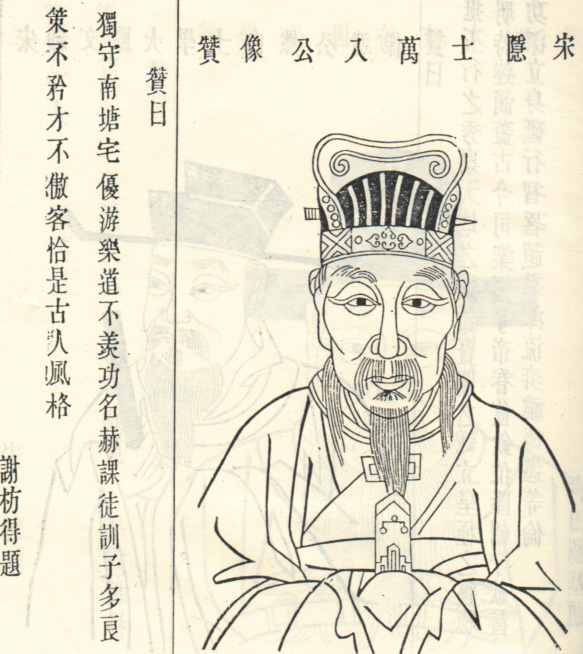 宋隱士萬八公像贊
贊曰
獨守南塘宅優游樂道不羨功名赫課徒訓子多良
策不矜才不傲客恰是古人風格
謝枋得題